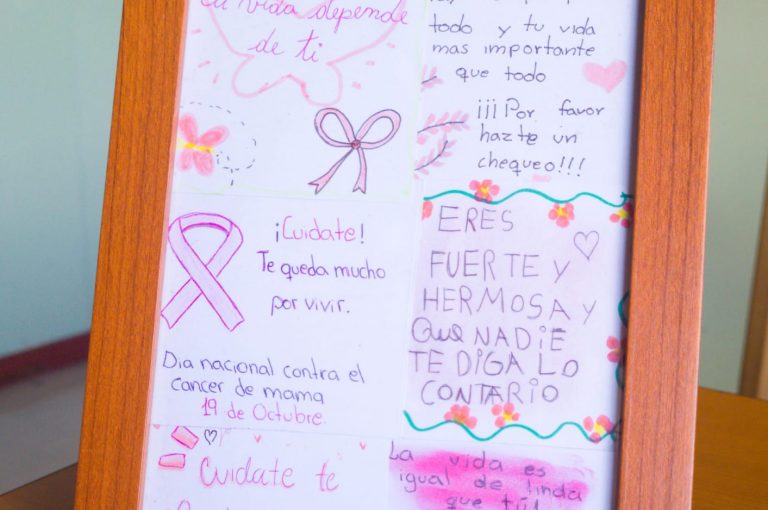 la vida depende
de ti
todo y tu vida
mas importante
que todo
¡¡¡Por favor
hazte un
chequeo!!!
¡Cuidate!
Te queda mucho
por vivir.
Dia nacional contra el
cancer de mama
19 de Octubre.
ERES
FUERTE Y
HERMOSA Y
QUE NADIE
TE DIGA LO
CONTARIO
Cuidate te
La vida es
igual de linda
que tú!